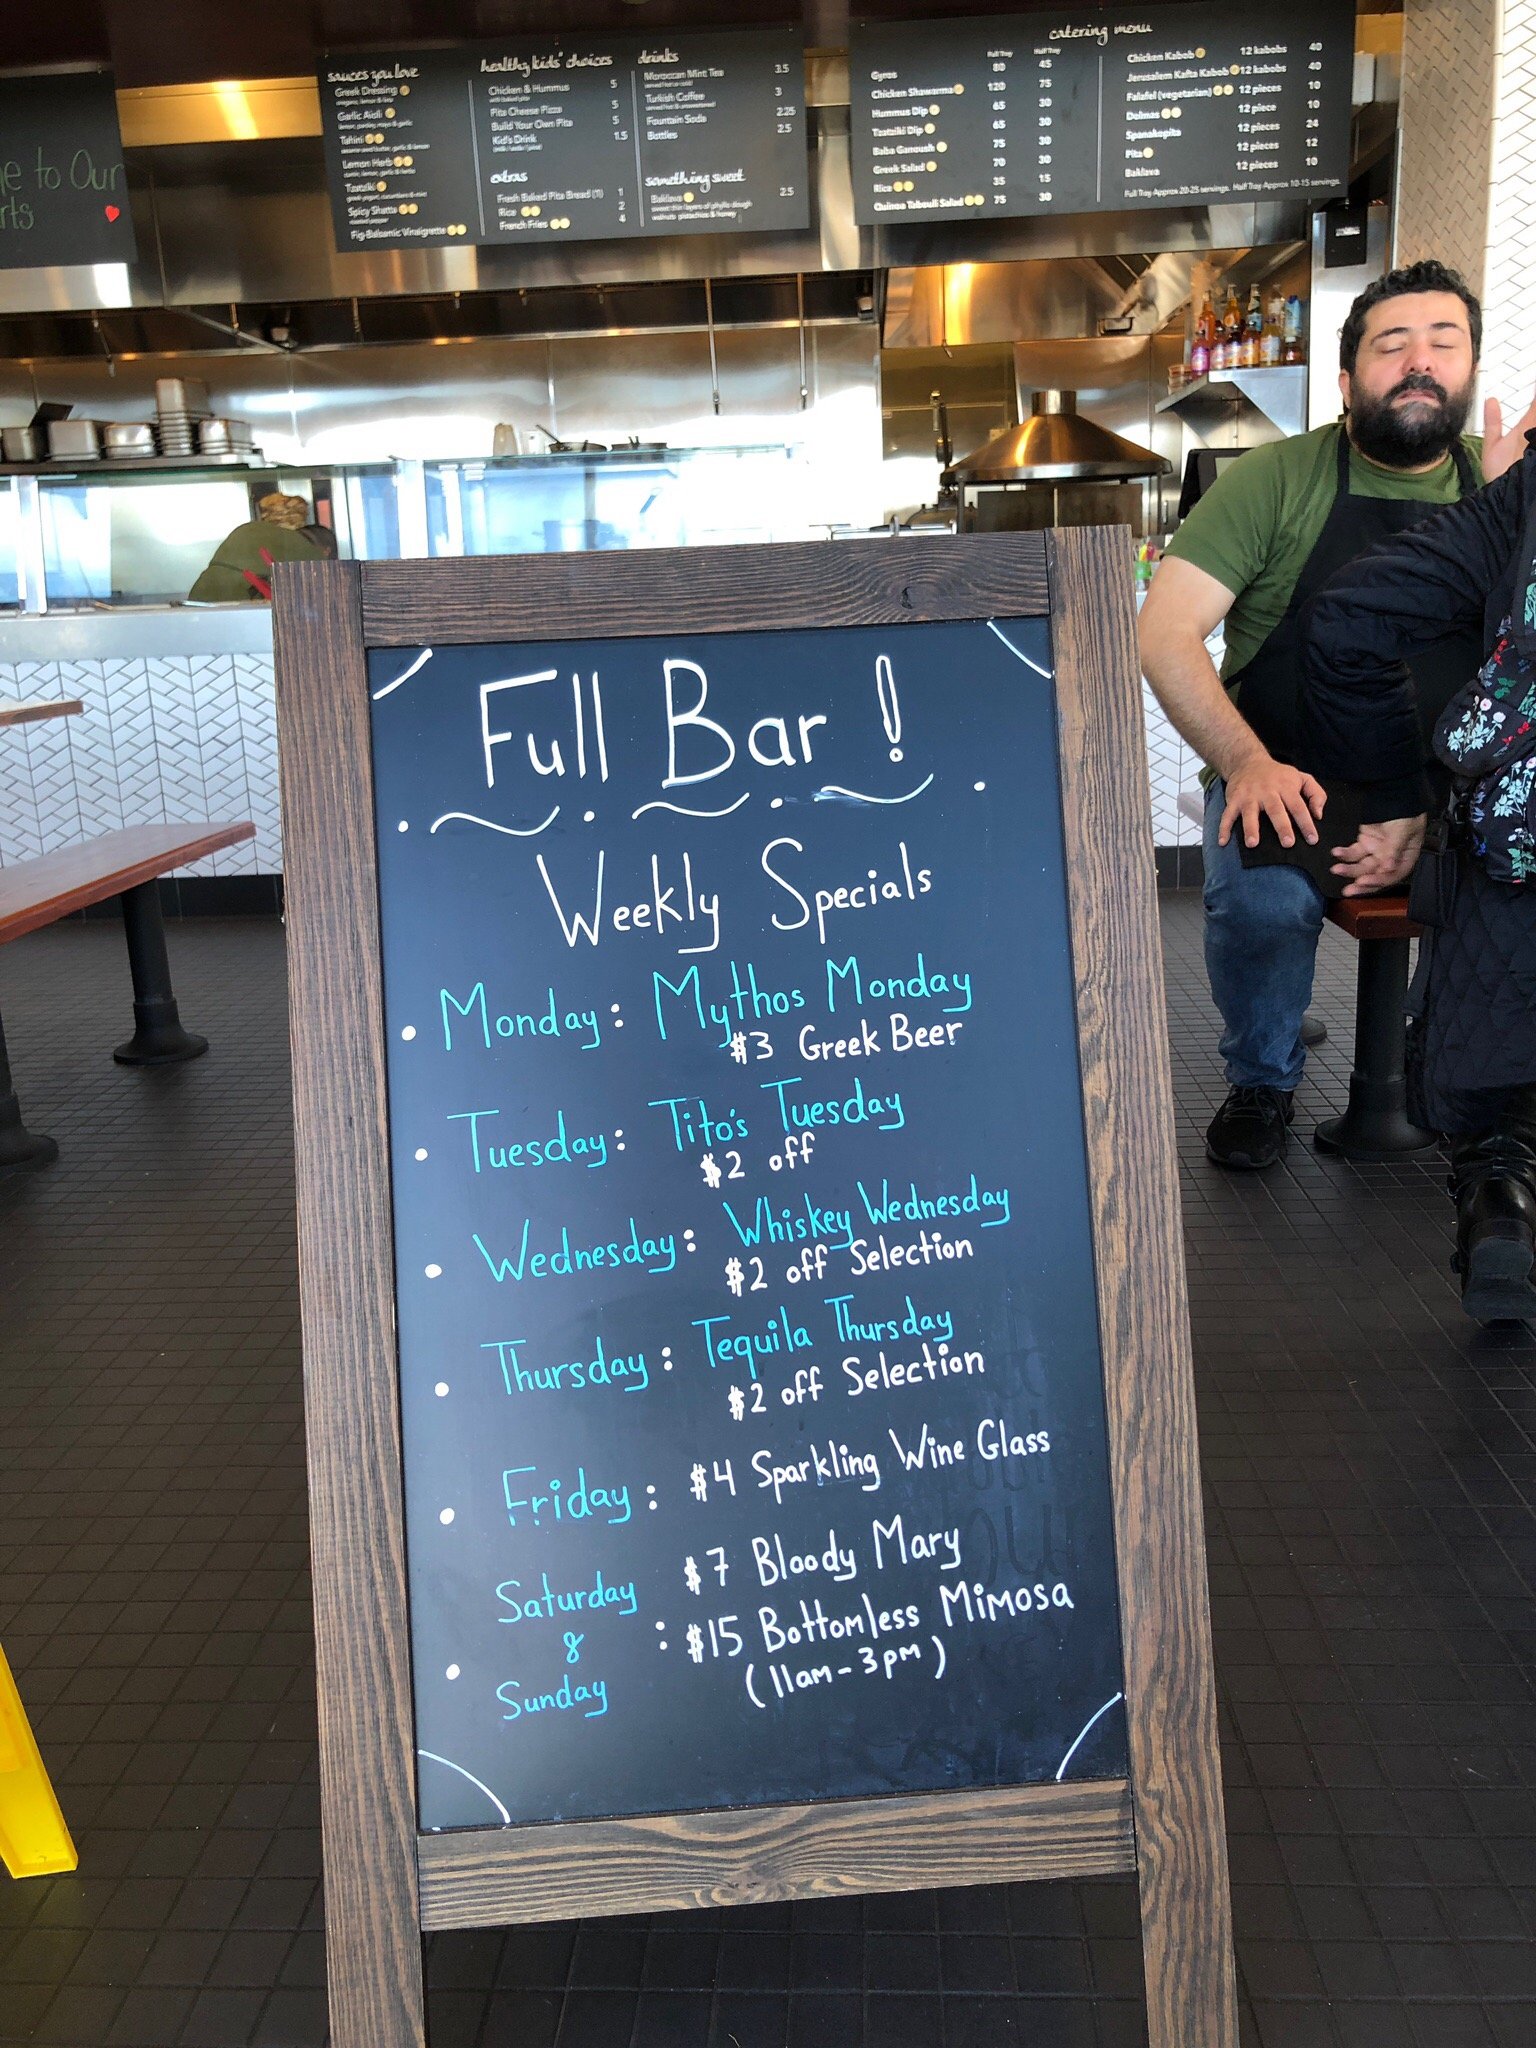 e to Our
rts
sauces you love
Greek Dressing
Garlic Aioli
Tahini
Lemon Herb
Tzatziki
Spicy Shatta
Fig-Balsamic Vinaigrette
healthy kids' choices
Chicken & Hummus 5
Pita Cheese Pizza 5
Build Your Own Pita 5
Kid's Drink 1.5
extras
Fresh Baked Pita Bread (1) 1
Rice 2
French Fries 4
drinks
Moroccan Mint Tea 3.5
Turkish Coffee 3
Fountain Soda 2.25
Bottles 2.5
something sweet
Baklava 2.5
sweet thin layers of phyllo dough
walnuts pistachios & honey
catering menu
Full Tray Half Tray
Gyros 80 45
Chicken Shawarma 120 75
Hummus Dip 65 30
Tzatziki Dip 65 30
Baba Ganoush 75 30
Greek Salad 70 30
Rice 35 15
Quinoa Tabouli Salad 75 30
Chicken Kabob 12 kabobs 40
Jerusalem Kafta Kabob 12 kabobs 40
Falafel (vegetarian) 12 pieces 10
Dolmas 12 piece 10
Spanakopita 12 pieces 24
Pita 12 pieces 12
Baklava 12 pieces 10
Full Tray Approx 20-25 servings. Half Tray Approx 10-15 servings.
Full Bar!
Weekly Specials
• Monday: Mythos Monday
$3 Greek Beer
• Tuesday: Tito's Tuesday
$2 off
• Wednesday: Whiskey Wednesday
$2 off Selection
• Thursday: Tequila Thursday
$2 off Selection
• Friday: $4 Sparkling Wine Glass
• Saturday & Sunday: $7 Bloody Mary
$15 Bottomless Mimosa
(11am-3pm)